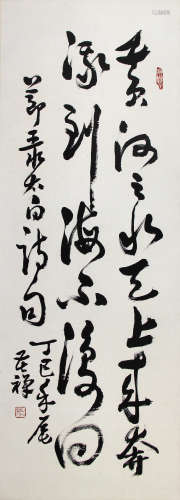 黄河之水天上来奔
流到海不复回
节录太白诗句
丁巳年尾
苦禅